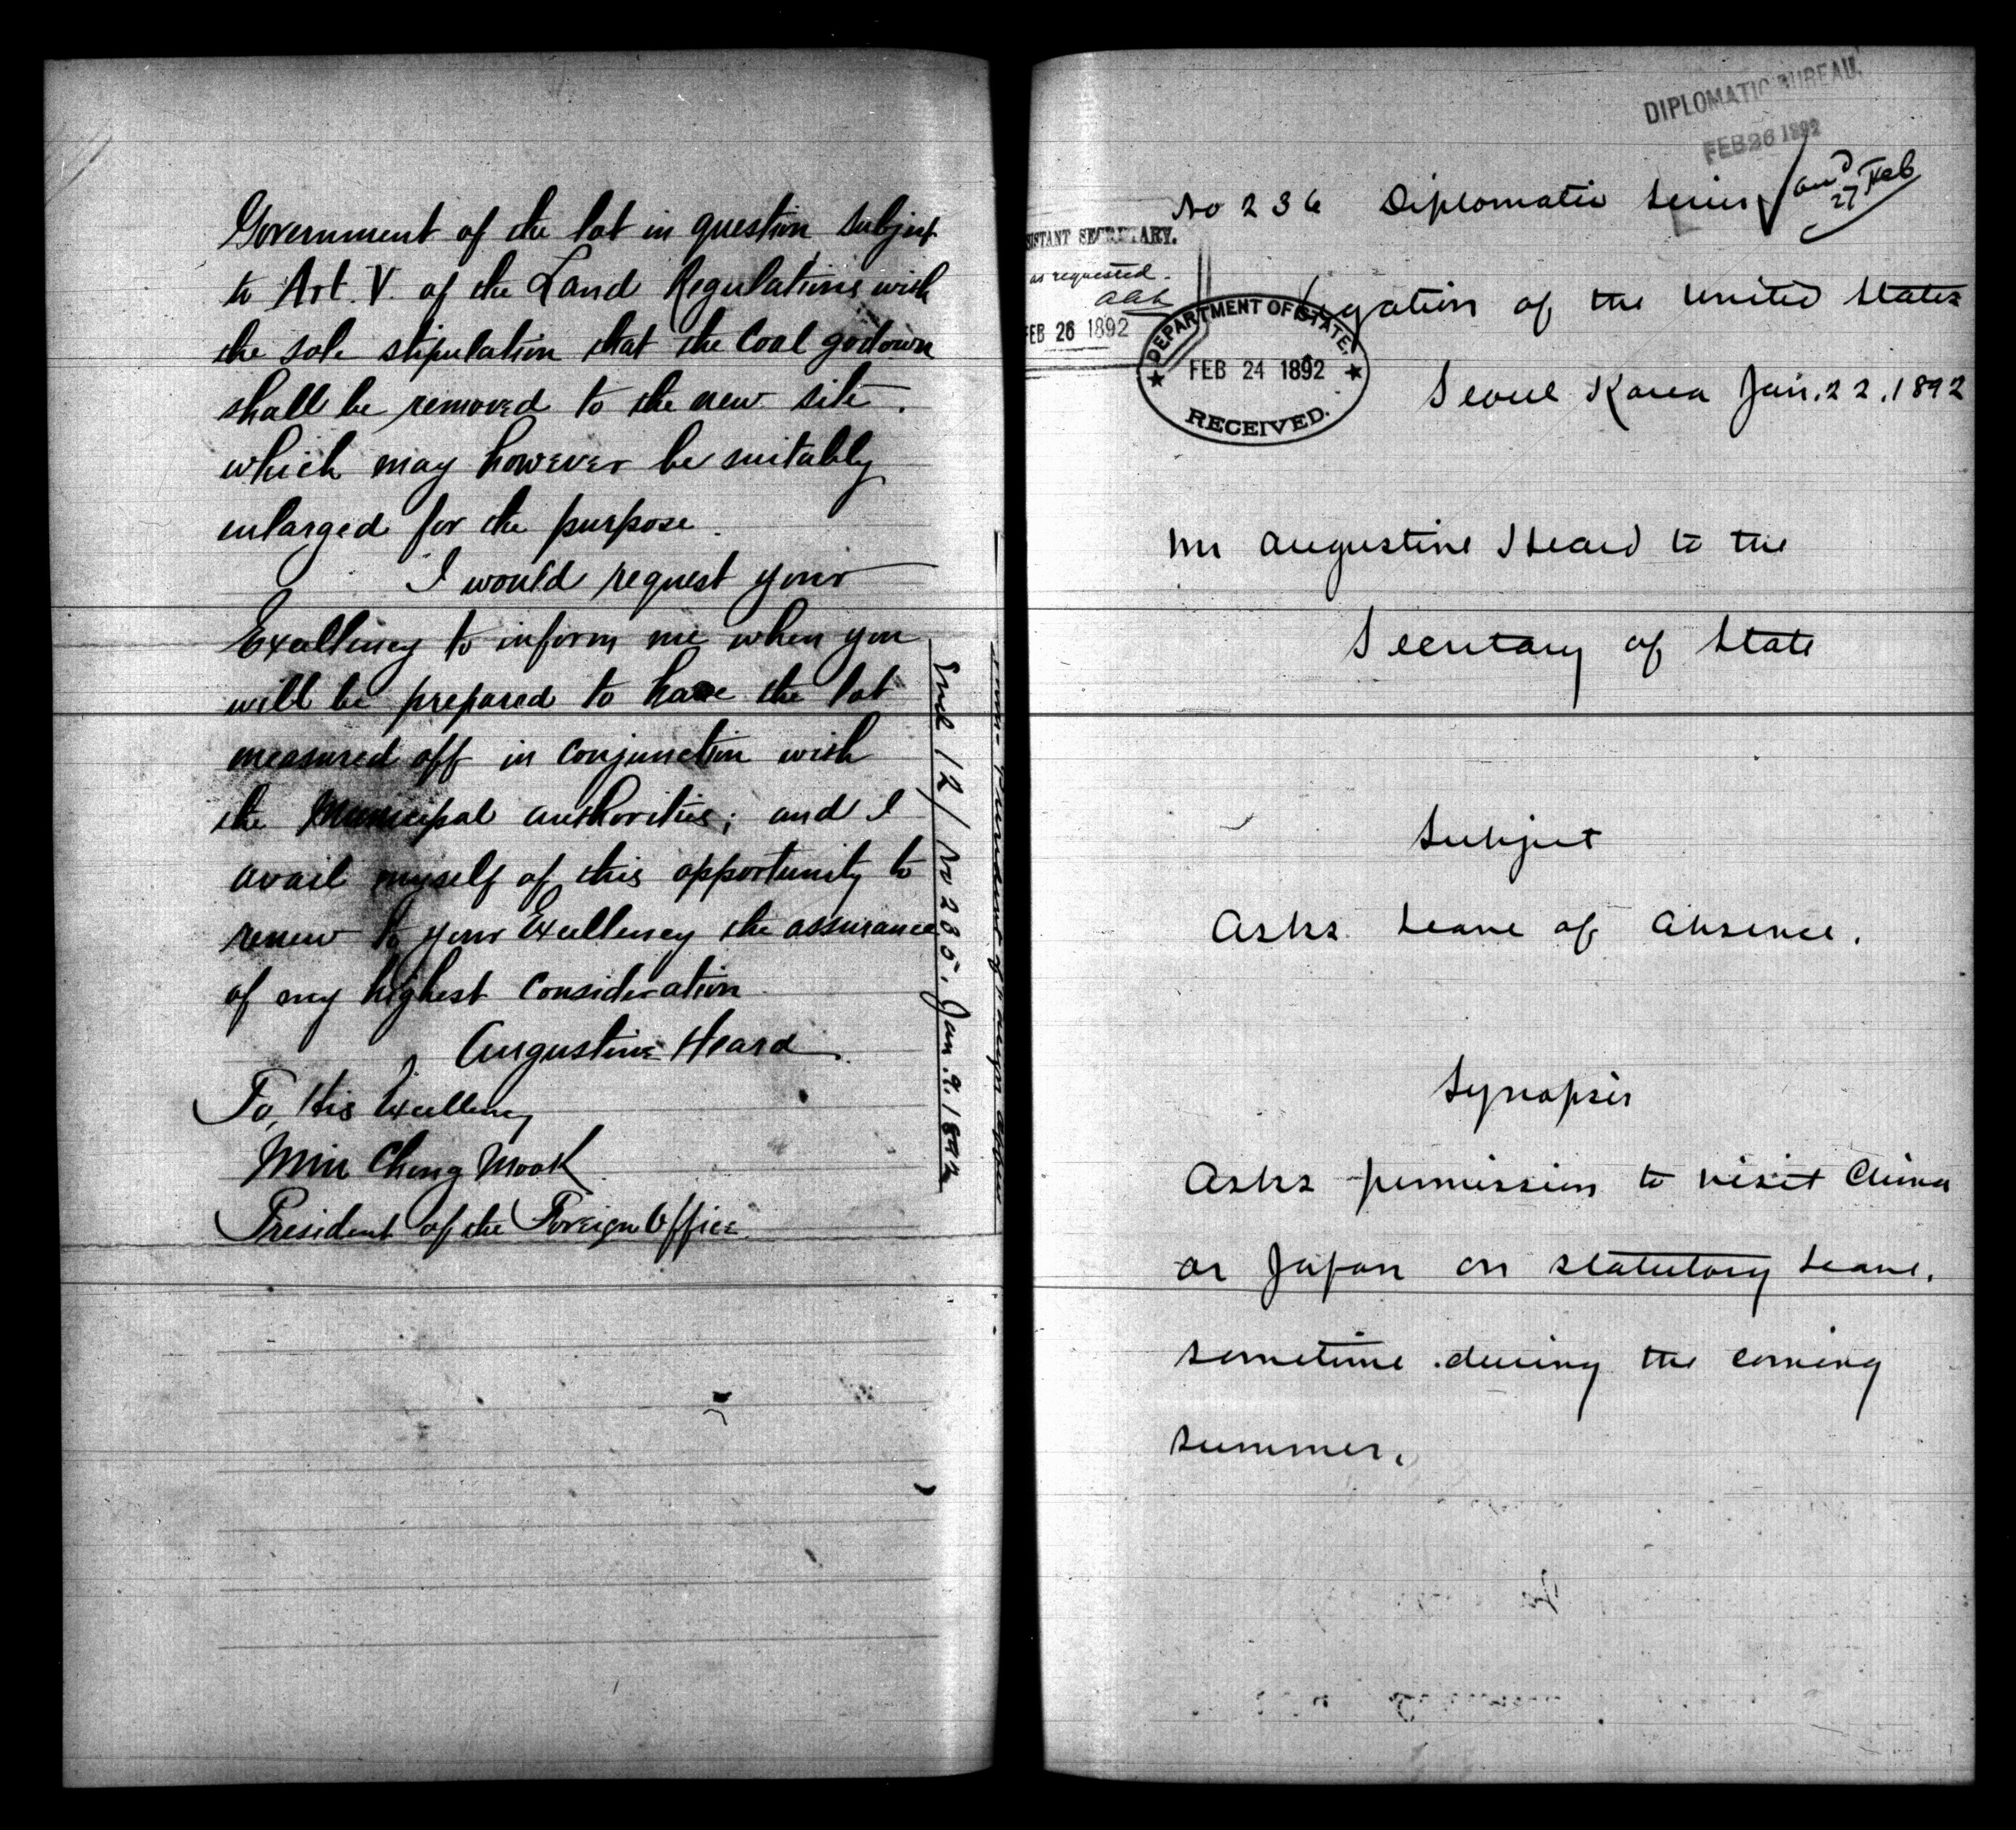 Government of the lot in question subject
to Art. V. of the Land Regulations with
the sole stipulation that the Coal godown
shall be removed to the new site,
which may however be suitably
enlarged for the purpose.
I would request your
Excellency to inform me when you
will be prepared to have the lot
measured off in conjunction with
the Municipal authorities; and I
avail myself of this opportunity to
renew to your Excellency the assurance
of my highest Consideration
Augustine Heard.
To, His Excellency
Min Chong Mook
President of the Foreign Office.
Encl 12/ No 235. Jan. 9. 1892
DIPLOMATIC BUREAU.
FEB 26 1892
No 236 Diplomatic Series
and 27 Feb
SISTANT SECRETARY.
as requested.
FEB 26 1892
DEPARTMENT OF STATE.
FEB 24 1892
RECEIVED.
Legation of the United States
Seoul Korea Jan. 22. 1892
Mr Augustine Heard to the
Secretary of State
Subject
Asks Leave of Absence.
Synopsis
Asks permission to visit China
or Japan on statutory leave,
sometime during the coming
summer.